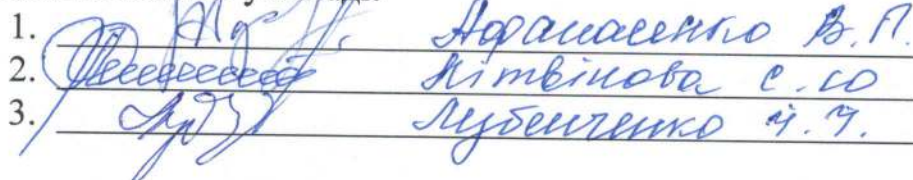 1. Афанасенко В.П.
2. Літвінова С.Ю
3. Лубенченко Ч.Ч.